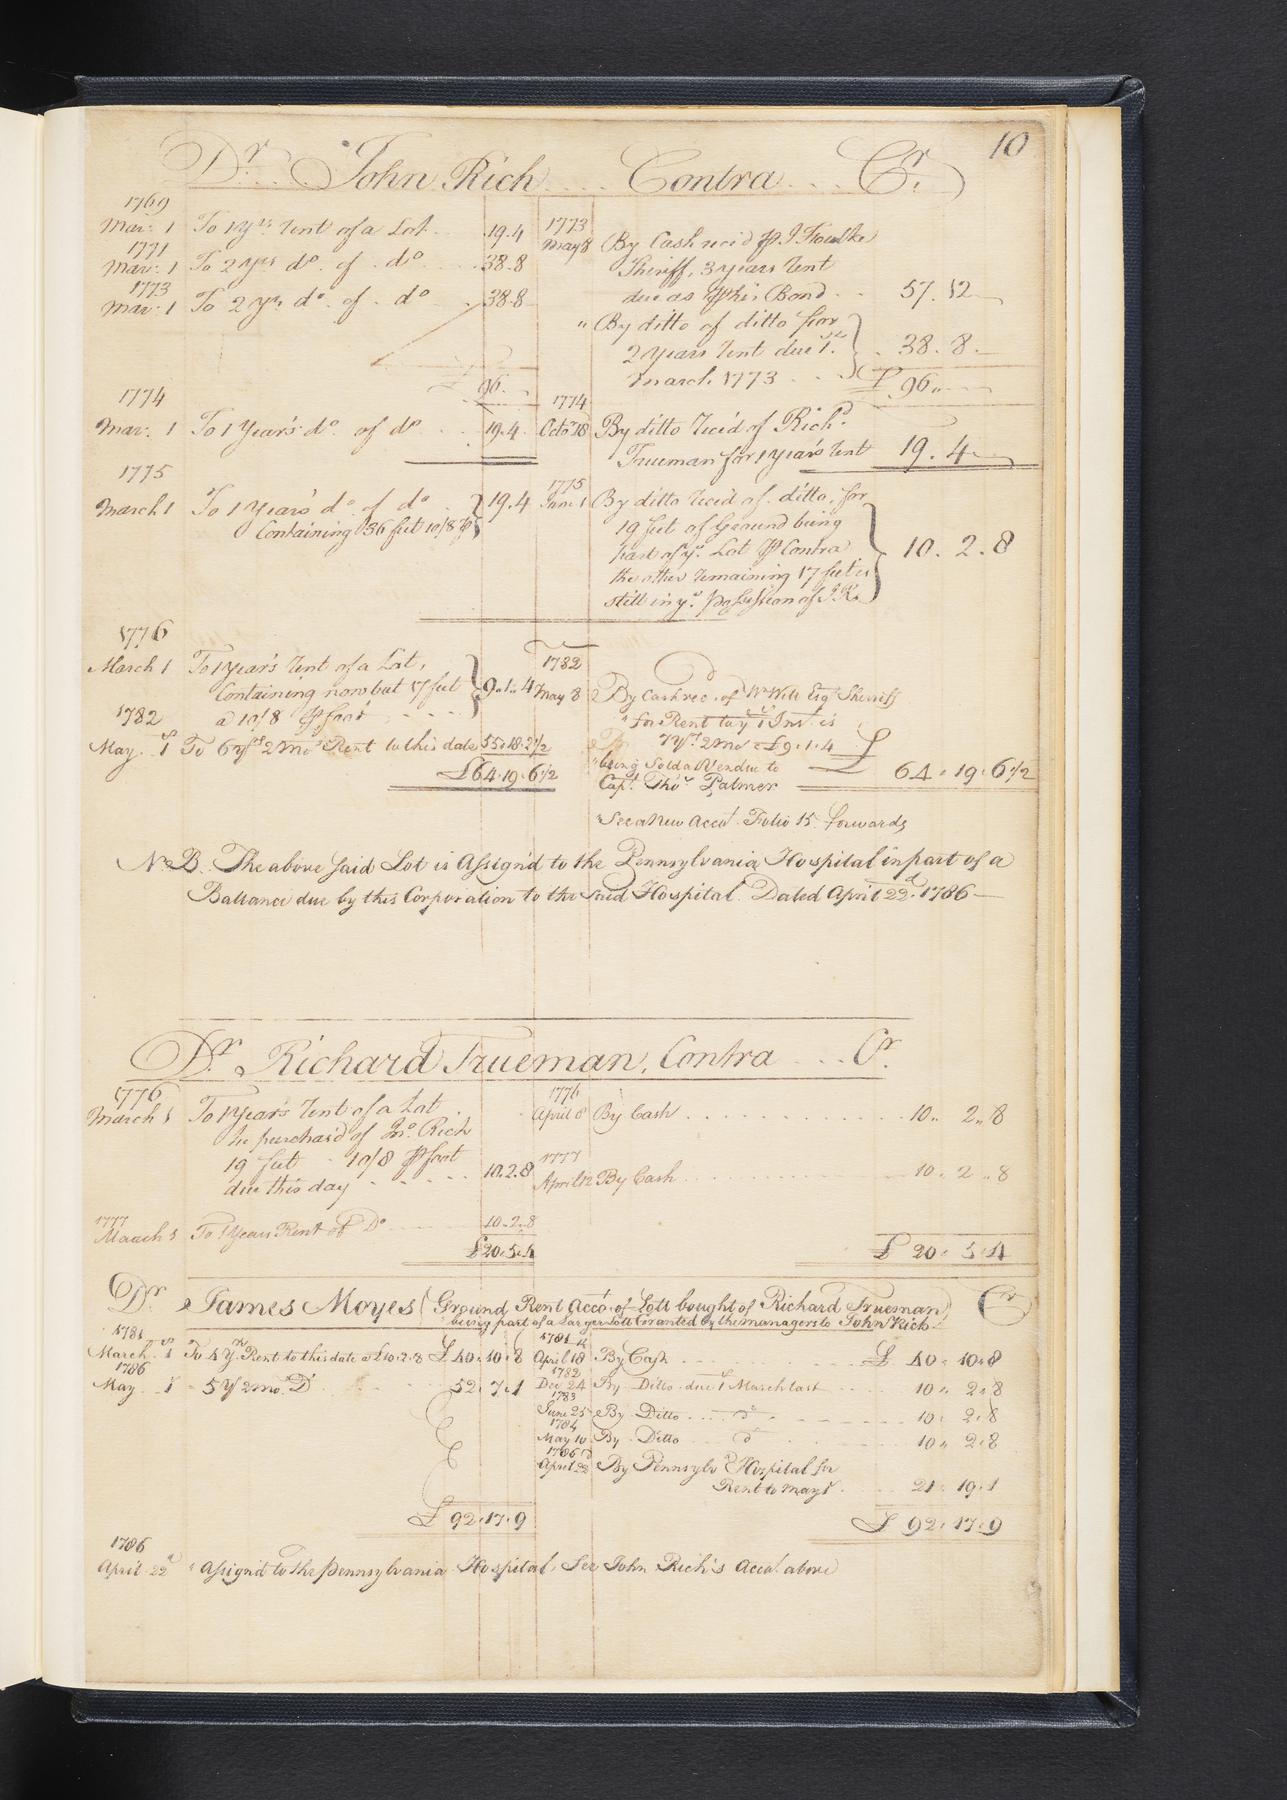 10
Dr. John Rich Contra Cr.
1769
Mar: 1 To 1 Yrs. Rent of a Lot 19.4
1771
Mar: 1 To 2 Yrs do. of do 38.8
1773
Mar: 1 To 2 Yrs do. of do 38.8
£ 96.
1774
Mar. 1 To 1 Year's do. of do 19.4
1775
March 1 To 1 Year's do. of do 19.4
Containing 36 feet 10/8 ⅌
1776
March 1 To 1 Year's Rent of a Lot,
Containing now but 17 feet 9.1.4
a 10/8 ⅌ foot
1782
May. 1st To 6 Yrs 2 Mos Rent to this date 55.18.2 1/2
£64.19.6 1/2
1773
May 8 By Cash recd ⅌ J Foulke
Sheriff, 3 years Rent
due as ⅌ his Bond 57.12
" By ditto of ditto for
2 years Rent due 1st 38.8.
March 1773
£ 96"
1774
Octor 18 By ditto Rec'd of Richd.
Trueman for 1 year's Rent 19.4
1775
June 1 By ditto Rec'd of ditto, for
19 feet of Ground being
part of ye. Lot ⅌ Contra 10.2.8
the other remaining 17 feet is
still in ye. possession of J.R.
1782
May 8 By Cash rec. of Wm Will Esqr Sherriff
for Rent to ye 1st Inst. is
7 Yrs 2 Mos a £9.1.4
being Sold a Vendue to £ 64.19.6 1/2
Capt. Thos Palmer
See a New Accot. Folio 15 forwards
N.B. The above said Lot is Assign'd to the Pennsylvania Hospital in part of a
Ballance due by this Corporation to the said Hospital. Dated April 22d. 1786
Dr. Richard Trueman, Contra Cr.
1776
March 1 To 1 Year's Rent of a Lot
he purchas'd of Jno. Rich
19 feet 10/8 ⅌ foot
due this day 10.2.8
1777
March 1 To 1 Years Rent of Do 10.2.8
£20.5.4
1776
April 8 By Cash 10.. 2.. 8
1777
April 12 By Cash 10. 2..8
£ 20.5.4
Dr James Moyes (Ground Rent Accot. of Lott bought of Richard Trueman) Cr
being part of a Larger Lott Granted by the managers to John Rich
1781
March 1st To 4 Yrs. Rent to this date a £10.2.8 £ 40.10.8
1786
May 1 5 Yrs 2 Mos. Do 52.7.1
£ 92.17.9
1781
April 18 By Cash £ 40.10.8
1782
Dec 24 By Ditto due 1st March last 10.. 2.8
1783
June 25 By Ditto do 10. 2.8
1784
May 10 By Ditto do 10.. 2.8
1786
April 22d By Pennsylva Hospital for
Rent to May 1st 21.19.1
£ 92.17.9
1786
April 22d Assign'd to the Pennsylvania Hospital, See John Rich's Accot. above